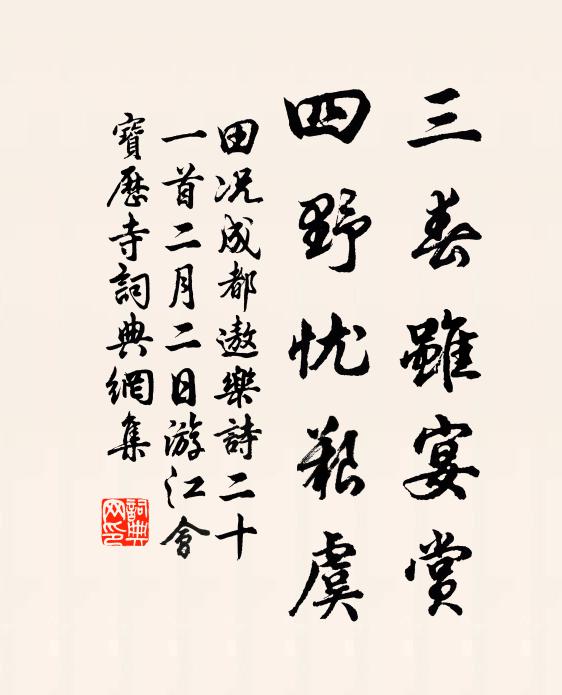 三春雖宴賞
四野忧艱虞
田况成都遨樂詩二十
一首二月二日游江會
寶歷寺詞典網集
詞典网印